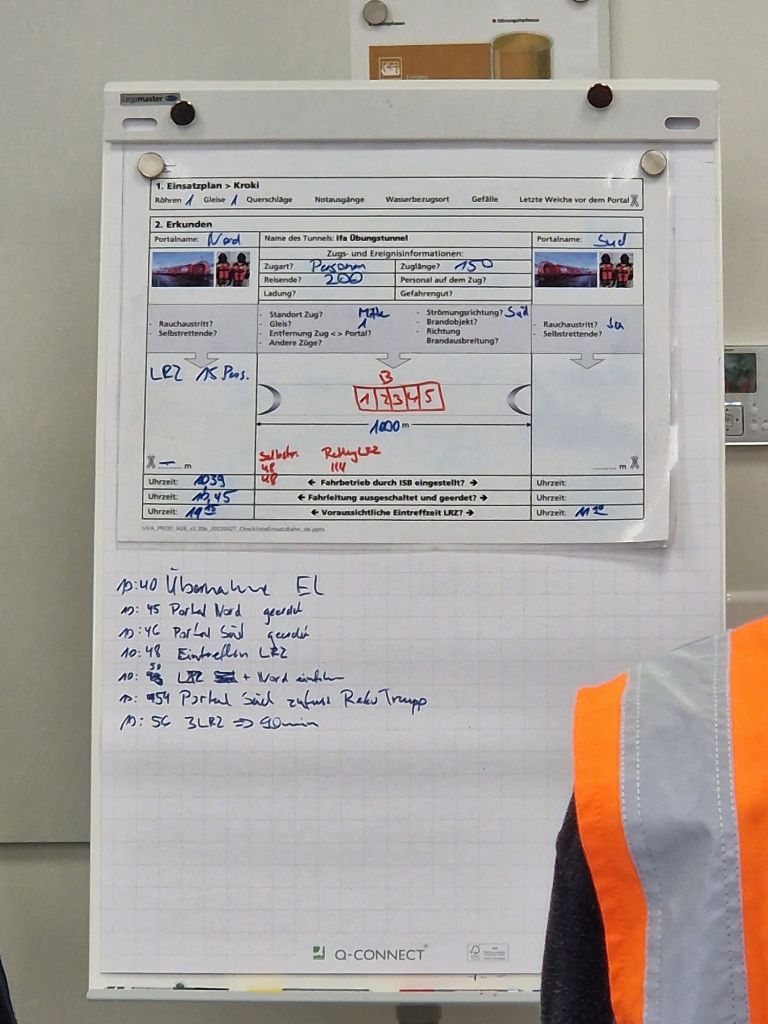 Legamaster
1. Einsatzplan > Kroki
Röhren 1 Gleise 1 Querschläge Notausgänge Wasserbezugsort Gefälle Letzte Weiche vor dem Portal X
2. Erkunden
Portalname: Nord Name des Tunnels: Ifa Übungstunnel Portalname: Süd
Zugs- und Ereignisinformationen:
Zugart? Personen Zuglänge? 150
Reisende? 200 Personal auf dem Zug?
Ladung? Gefahrengut?
- Rauchaustritt?
- Selbstrettende?
- Standort Zug? Mitte
- Gleis? 1
- Entfernung Zug <> Portal?
- Andere Züge?
- Strömungsrichtung? Süd
- Brandobjekt?
- Richtung
Brandausbreitung?
- Rauchaustritt? Ja
- Selbstrettende?
LRZ 15 Pers.
B
1 2 3 4 5
1000 m
Selbstr. Rettung LRZ
48 114
48
X m
m X
Uhrzeit: 1039 ← Fahrbetrieb durch ISB eingestellt? → Uhrzeit:
Uhrzeit: 10,45 ← Fahrleitung ausgeschaltet und geerdet? → Uhrzeit:
Uhrzeit: ← Voraussichtliche Eintreffzeit LRZ? → Uhrzeit: 11
UVA_PROD_H28_v2.20e_20220427_ChecklisteEinsatzBahn_de.pptx
10:40 Übernahme EL
10:45 Portal Nord geerdet
10:46 Portal Süd geerdet
10:48 Eintreffen LRZ
10:50 LRZ + Nord einfahren
10:54 Portal Süd zufuss Reko Trupp
10:56 3 LRZ => 90min
Q-CONNECT
FSC